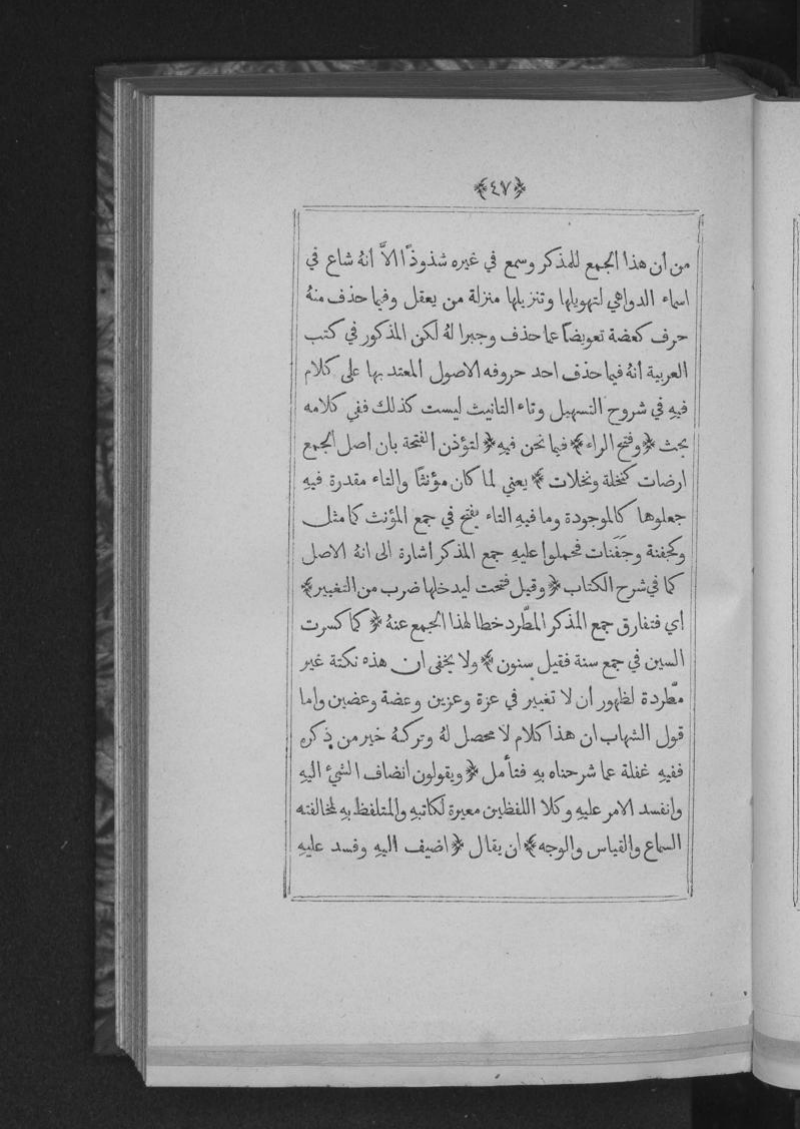 ﴿٤٧﴾
من ان هذا الجمع للمذكر وسمع في غيره شذوذًا الاَّ انهُ شاع في
اسماء الدواهي لتهويلها وتنزيلها منزلة من يعقل وفيما حذف منهُ
حرف كعضة تعويضًا عما حذف وجبرا لهُ لكن المذكور في كتب
العربية انهُ فيما حذف احد حروفه الاصول المعتد بها على كلام
فيهِ في شروح التسهيل وتاء التانيث ليست كذلك ففي كلامه
بحث ﴿وفتح الراء﴾ فيما نحن فيهِ ﴿لتؤذن الفتحة بان اصل الجمع
ارضات كنخلة ونخلات﴾ يعني لما كان مؤنثًا والتاء مقدرة فيهِ
جعلوها كالموجودة وما فيهِ التاء يفتح في جمع المؤنث كما مثل
وكجفنة وجَفَنات فحملوا عليهِ جمع المذكر اشارة الى انهُ الاصل
كما في شرح الكتاب ﴿وقيل فتحت ليدخلها ضرب من التغيير﴾
اي فتفارق جمع المذكر المطَّرد خطا لهذا الجمع عنهُ ﴿كما كسرت
السين في جمع سنة فقيل سنون﴾ ولا يخفى ان هذه نكتة غير
مطَّردة لظهور ان لا تغيير في عزة وعزين وعضة وعضين واما
قول الشهاب ان هذا كلام لا محصل لهُ وتركهُ خير من ذكره
ففيهِ غفلة عما شرحناه بهِ فتأمل ﴿ويقولون انضاف الشيُ اليهِ
وانفسد الامر عليهِ وكلا اللفظين معيرة لكاتبهِ والمتلفظ بهِ لمخالفته
السماع والقياس والوجه﴾ ان يقال ﴿اضيف اليهِ وفسد عليهِ